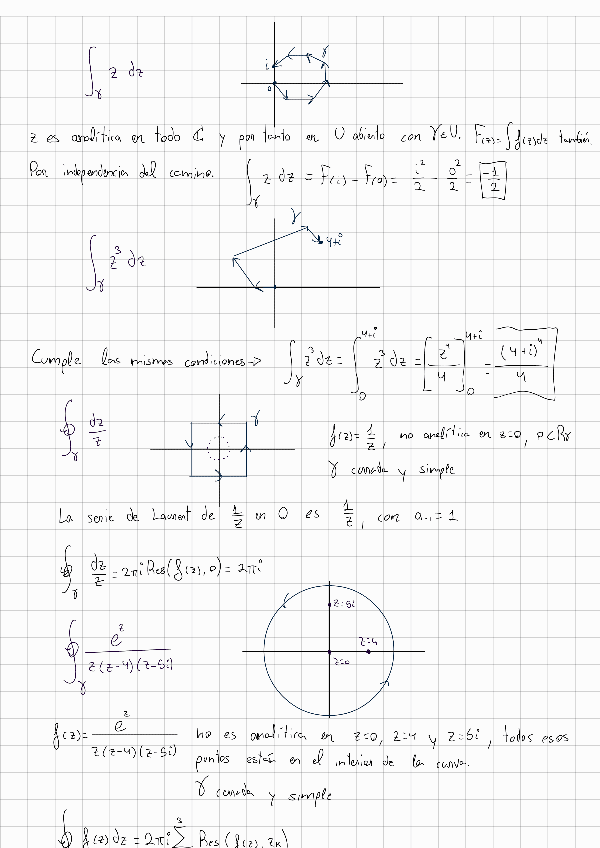 ∫_γ z dz
i γ
0
z es analítica en todo ℂ y por tanto en U abierto con γ∈U. F(z)=∫f(z)dz también.
Por independencia del camino. ∫_γ z dz = F(i) - F(0) = i²/2 - 0²/2 = -1/2
∫_γ z³ dz
γ
4+i
Cumple las mismas condiciones → ∫_γ z³dz = ∫_0^{4+i} z³dz = [z⁴/4]_0^{4+i} = (4+i)⁴/4
∮_γ dz/z
γ
f(z)=1/z, no analítica en z=0, 0∈Rγ
γ cerrada y simple
La serie de Laurent de 1/z en 0 es 1/z, con a₋₁=1
∮_γ dz/z = 2πi Res(f(z),0) = 2πi
z=5i
∮_γ e^z/(z(z-4)(z-5i))
z=4
z=0
f(z)= e^z/(z(z-4)(z-5i)) no es analítica en z=0, z=4 y z=5i, todos esos
puntos están en el interior de la curva.
γ cerrada y simple
∮ f(z)dz = 2πi Σ³ Res(f(z), zk)